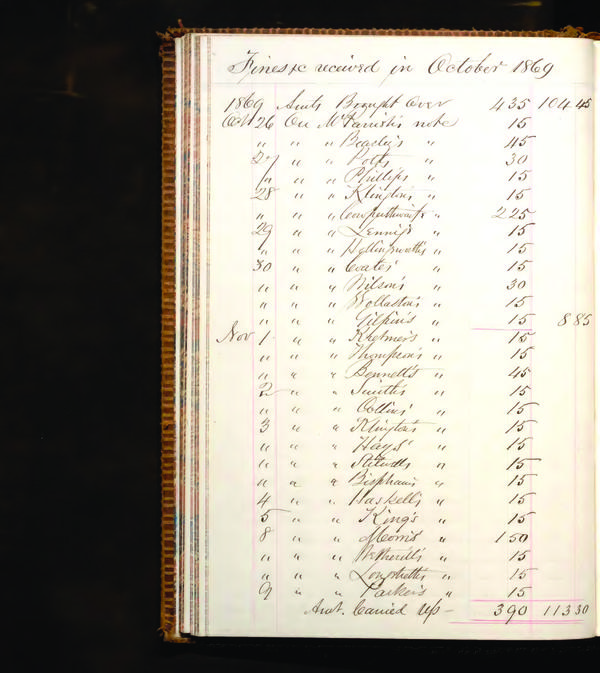 Fines &c received in October 1869
1869 Amts Brought Over 435 104 45
Oct 26 On McParrish's note 15
" " " Beasley's " 45
27 " " Potts " 30
" " " Phillips " 15
28 " " Klington's " 15
" " " Cowperthwait's " 225
29 " " Lennig's " 15
" " " Hollingsworth's " 15
30 " " Coates' " 15
" " " Wilson's " 30
" " " Wollaston's " 15
" " " Gilpin's " 15 8 85
Nov 1 " " 15
" " " Thompson's " 15
" " " Bennett's " 45
2 " " Smith's " 15
" " " Collins' " 15
3 " " Klington's " 15
" " " Hays' " 15
" " " " 15
" " " Bispham's " 15
4 " " Haskell's " 15
5 " " King's " 15
8 " " Morris " 150
" " " Wetherill's " 15
" " " Longstreth's " 15
9 " " Parker's " 15
Amt. Carried Up — 390 113 30